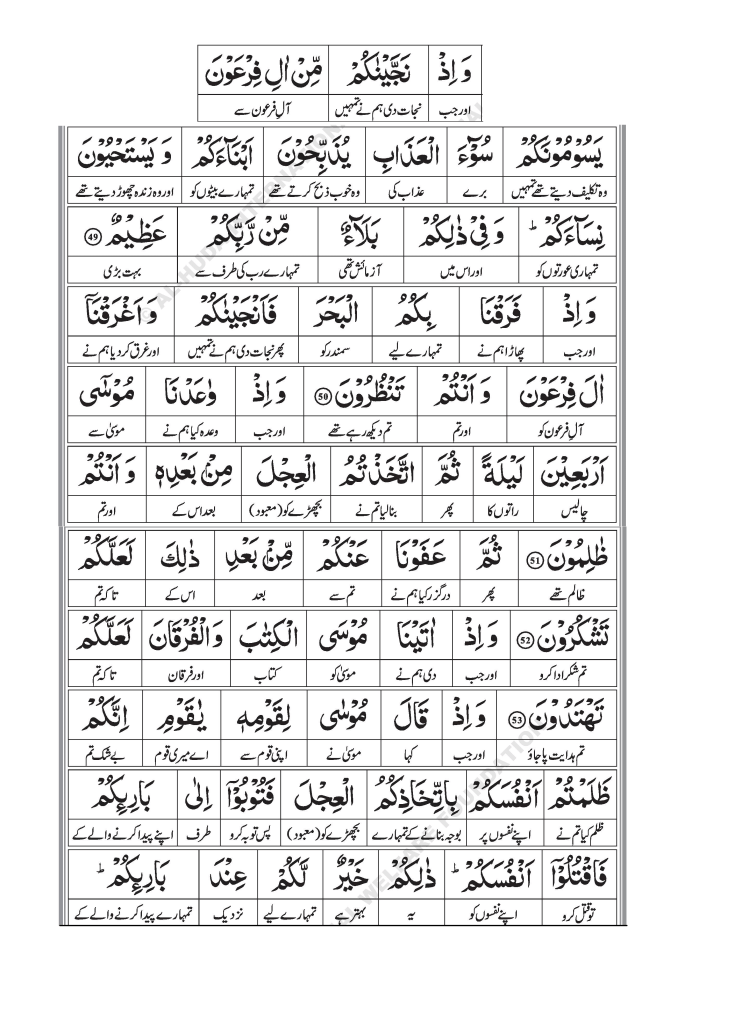 وَ اِذْ نَجَّيْنٰكُمْ مِّنْ اٰلِ فِرْعَوْنَ
اور جب نجات دی ہم نے تمہیں آلِ فرعون سے
يَسُوْمُوْنَكُمْ سُوْٓءَ الْعَذَابِ يُذَبِّحُوْنَ اَبْنَآءَكُمْ وَ يَسْتَحْيُوْنَ
وہ تکلیف دیتے تھے تمہیں برے عذاب کی وہ خوب ذبح کرتے تھے تمہارے بیٹوں کو اور وہ زندہ چھوڑ دیتے تھے
نِسَآءَكُمْ ؕ وَ فِيْ ذٰلِكُمْ بَلَآءٌ مِّنْ رَّبِّكُمْ عَظِيْمٌ 49
تمہاری عورتوں کو اور اس میں آزمائش تھی تمہارے رب کی طرف سے بہت بڑی
وَ اِذْ فَرَقْنَا بِكُمُ الْبَحْرَ فَاَنْجَيْنٰكُمْ وَ اَغْرَقْنَآ
اور جب پھاڑا ہم نے تمہارے لیے سمندر کو پھر نجات دی ہم نے تمہیں اور غرق کر دیا ہم نے
اٰلَ فِرْعَوْنَ وَ اَنْتُمْ تَنْظُرُوْنَ 50 وَ اِذْ وٰعَدْنَا مُوْسٰٓى
آلِ فرعون کو اور تم تم دیکھ رہے تھے اور جب وعدہ کیا ہم نے موسیٰ سے
اَرْبَعِيْنَ لَيْلَةً ثُمَّ اتَّخَذْتُمُ الْعِجْلَ مِنْۢ بَعْدِهٖ وَ اَنْتُمْ
چالیس راتوں کا پھر بنا لیا تم نے بچھڑے کو (معبود) بعد اس کے اور تم
ظٰلِمُوْنَ 51 ثُمَّ عَفَوْنَا عَنْكُمْ مِّنْۢ بَعْدِ ذٰلِكَ لَعَلَّكُمْ
ظالم تھے پھر درگزر کیا ہم نے تم سے بعد اس کے تاکہ تم
تَشْكُرُوْنَ 52 وَ اِذْ اٰتَيْنَا مُوْسَى الْكِتٰبَ وَالْفُرْقَانَ لَعَلَّكُمْ
تم شکر ادا کرو اور جب دی ہم نے موسیٰ کو کتاب اور فرقان تاکہ تم
تَهْتَدُوْنَ 53 وَ اِذْ قَالَ مُوْسٰى لِقَوْمِهٖ يٰقَوْمِ اِنَّكُمْ
تم ہدایت پا جاؤ اور جب کہا موسیٰ نے اپنی قوم سے اے میری قوم بے شک تم
ظَلَمْتُمْ اَنْفُسَكُمْ بِاتِّخَاذِكُمُ الْعِجْلَ فَتُوْبُوْٓا اِلٰى بَارِئِكُمْ
ظلم کیا تم نے اپنے نفسوں پر بوجہ بنانے کے تمہارے بچھڑے کو (معبود) پس توبہ کرو طرف اپنے پیدا کرنے والے کے
فَاقْتُلُوْٓا اَنْفُسَكُمْ ؕ ذٰلِكُمْ خَيْرٌ لَّكُمْ عِنْدَ بَارِئِكُمْ ؕ
تو قتل کرو اپنے نفسوں کو یہ بہتر ہے تمہارے لیے نزدیک تمہارے پیدا کرنے والے کے